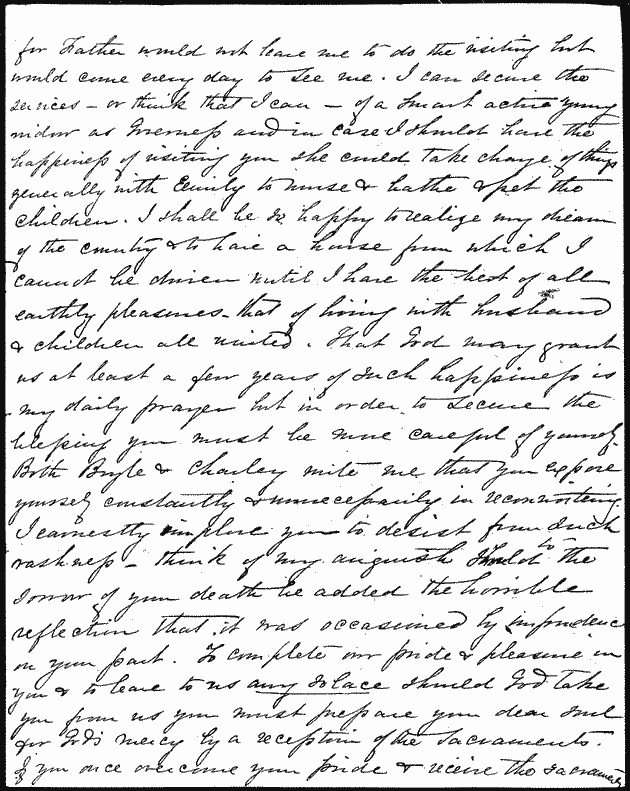 for Father would not leave me to do the visiting but
would come every day to see me. I can secure the
services - or think that I can - of a smart active young
widow as Governess and in case I should have the
happiness of visiting you she could take charge of things
generally with Emily to nurse & bathe & pet the
children. I shall be so happy to realize my dream
of the country & to have a house from which I
cannot be driven until I have the best of all
earthly pleasures - that of living with husband
& children all united. That God may grant
us at least a few years of such happiness is
my daily prayer but in order to secure the
blessing you must be more careful of yourself.
Both Boyle & Charley write me that you expose
yourself constantly & unnecessarily in reconnoitring
I earnestly implore you to desist from such
rashness - think of my anguish should to the
sorrow of your death be added the horrible
reflection that it was occasioned by imprudence
on your part. To complete our pride & pleasure in
you & to leave to us any solace should God take
you from us you must prepare your dear soul
for God's mercy by a reception of the Sacraments.
If you once overcome your pride & receive the sacraments